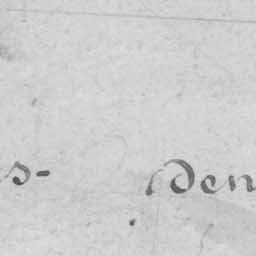 s- den